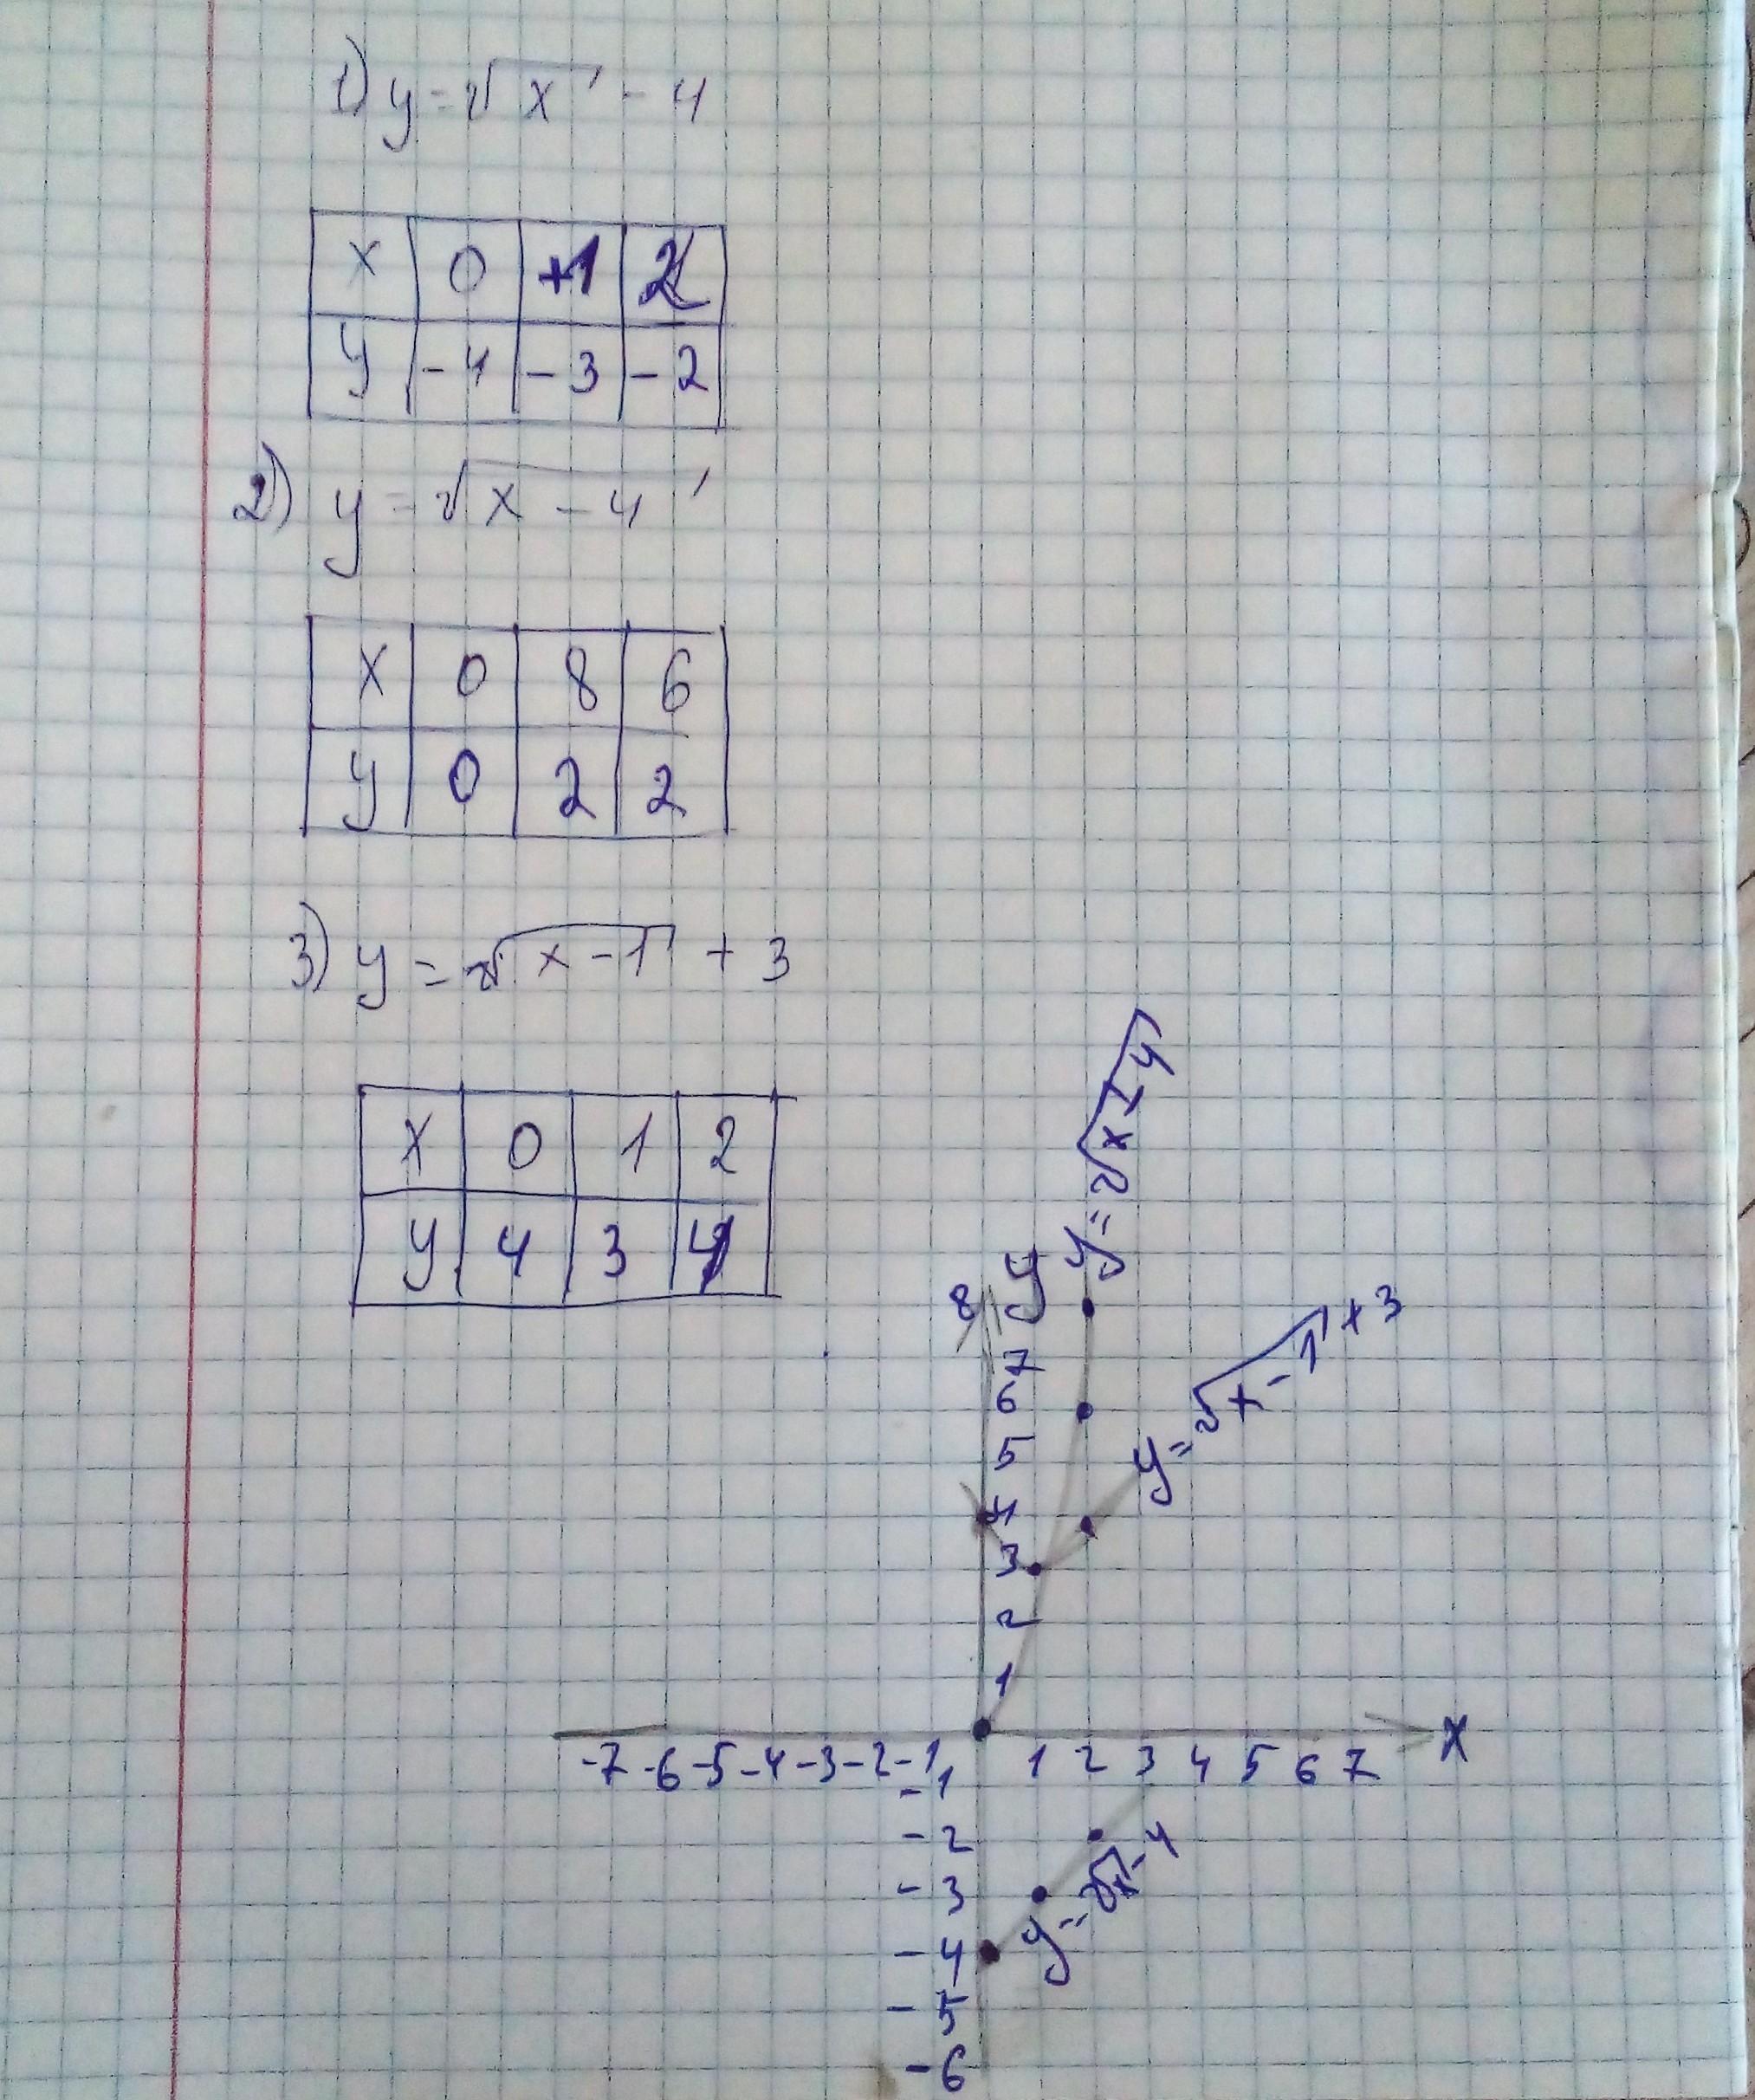 1) y = √x - 4
x 0 +1 2
y -4 -3 -2
2) y = √x - 4
x 0 8 6
y 0 2 2
3) y = √x - 1 + 3
x 0 1 2
y 4 3 4
y = √x - 4
8 y
7
6
5
4
3
2
1
y = √x - 1 + 3
-7 -6 -5 -4 -3 -2 -1 1 2 3 4 5 6 7 x
-1
-2
-3
-4
-5
-6
y = √x - 4